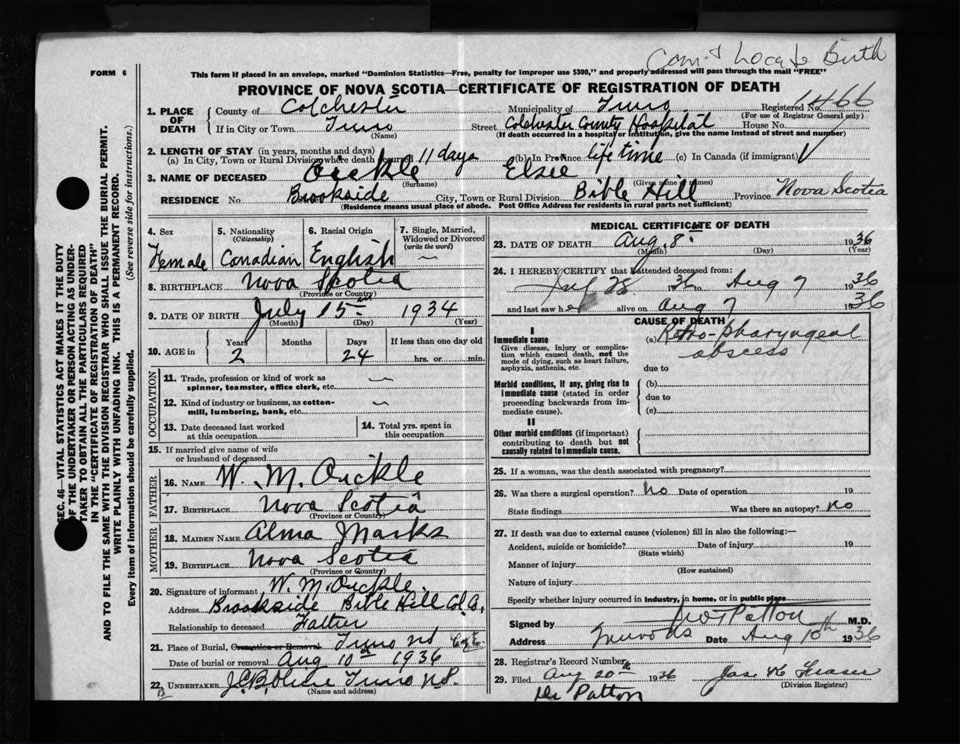 Com. & Locate Birth
FORM 6
This form if placed in an envelope, marked "Dominion Statistics—Free, penalty for improper use $300," and properly addressed will pass through the mail "FREE"
PROVINCE OF NOVA SCOTIA—CERTIFICATE OF REGISTRATION OF DEATH
1. PLACE OF DEATH County of Colchester Municipality of Truro Registered No. 1466
(For use of Registrar General only)
If in City or Town Truro Street Colchester County Hospital House No.
(Name) (If death occurred in a hospital or institution, give the name instead of street and number)
2. LENGTH OF STAY (in years, months and days)
(a) In City, Town or Rural Division where death occurred 11 days (b) In Province life time (c) In Canada (if immigrant)
3. NAME OF DECEASED Oickle Elsie
(Surname) (Given name or names)
RESIDENCE No Brookside City, Town or Rural Division Bible Hill Province Nova Scotia
(Residence means usual place of abode. Post Office Address for residents in rural parts not sufficient)
SEC. 46—VITAL STATISTICS ACT MAKES IT THE DUTY
OF THE UNDERTAKER OR PERSON ACTING AS UNDER-
TAKER TO OBTAIN ALL THE PARTICULARS REQUIRED
IN THE "CERTIFICATE OF REGISTRATION OF DEATH"
AND TO FILE THE SAME WITH THE DIVISION REGISTRAR WHO SHALL ISSUE THE BURIAL PERMIT.
WRITE PLAINLY WITH UNFADING INK. THIS IS A PERMANENT RECORD.
Every item of information should be carefully supplied. (See reverse side for instructions.)
4. Sex 5. Nationality (Citizenship) 6. Racial Origin 7. Single, Married, Widowed or Divorced (write the word)
Female Canadian English —
8. BIRTHPLACE Nova Scotia
(Province or Country)
9. DATE OF BIRTH July 15th 1934
(Month) (Day) (Year)
10. AGE in Years Months Days If less than one day old
2 24 hrs. or min.
OCCUPATION
11. Trade, profession or kind of work as spinner, teamster, office clerk, etc. —
12. Kind of industry or business, as cotton-mill, lumbering, bank, etc. —
13. Date deceased last worked at this occupation 14. Total yrs. spent in this occupation
15. If married give name of wife or husband of deceased
FATHER
16. NAME W. M. Oickle
17. BIRTHPLACE Nova Scotia
(Province or Country)
MOTHER
18. MAIDEN NAME Alma Marks
19. BIRTHPLACE Nova Scotia
(Province or Country)
20. Signature of informant W. M. Oickle.
Address Brookside Bible Hill Col. Co.
Relationship to deceased Father
21. Place of Burial, Cremation or Removal Truro NS
Date of burial or removal Aug 10th 1936
22. UNDERTAKER Truro N.S.
(Name and address)
MEDICAL CERTIFICATE OF DEATH
23. DATE OF DEATH Aug. 8th 1936
(Month) (Day) (Year)
24. I HEREBY CERTIFY that I attended deceased from:
July 28 1936 to Aug 7 1936
and last saw her alive on Aug 7 1936
CAUSE OF DEATH
I
Immediate cause (a) Retro-pharyngeal abscess
Give disease, injury or complication which caused death, not the mode of dying, such as heart failure, asphyxia, asthenia, etc.
due to
Morbid conditions, if any, giving rise to immediate cause (stated in order proceeding backwards from immediate cause). (b)
due to
(c)
II
Other morbid conditions (if important) contributing to death but not causally related to immediate cause.
25. If a woman, was the death associated with pregnancy?
26. Was there a surgical operation? No Date of operation 19
State findings Was there an autopsy? no
27. If death was due to external causes (violence) fill in also the following:—
Accident, suicide or homicide? Date of injury 19
(State which)
Manner of injury
(How sustained)
Nature of injury
Specify whether injury occurred in industry, in home, or in public place
Signed by Patton M.D.
Address Truro NS Date Aug 10th 1936
28. Registrar's Record Number
29. Filed Aug 20th 1936 Jas. K Fraser
(Division Registrar)
Dr Patton